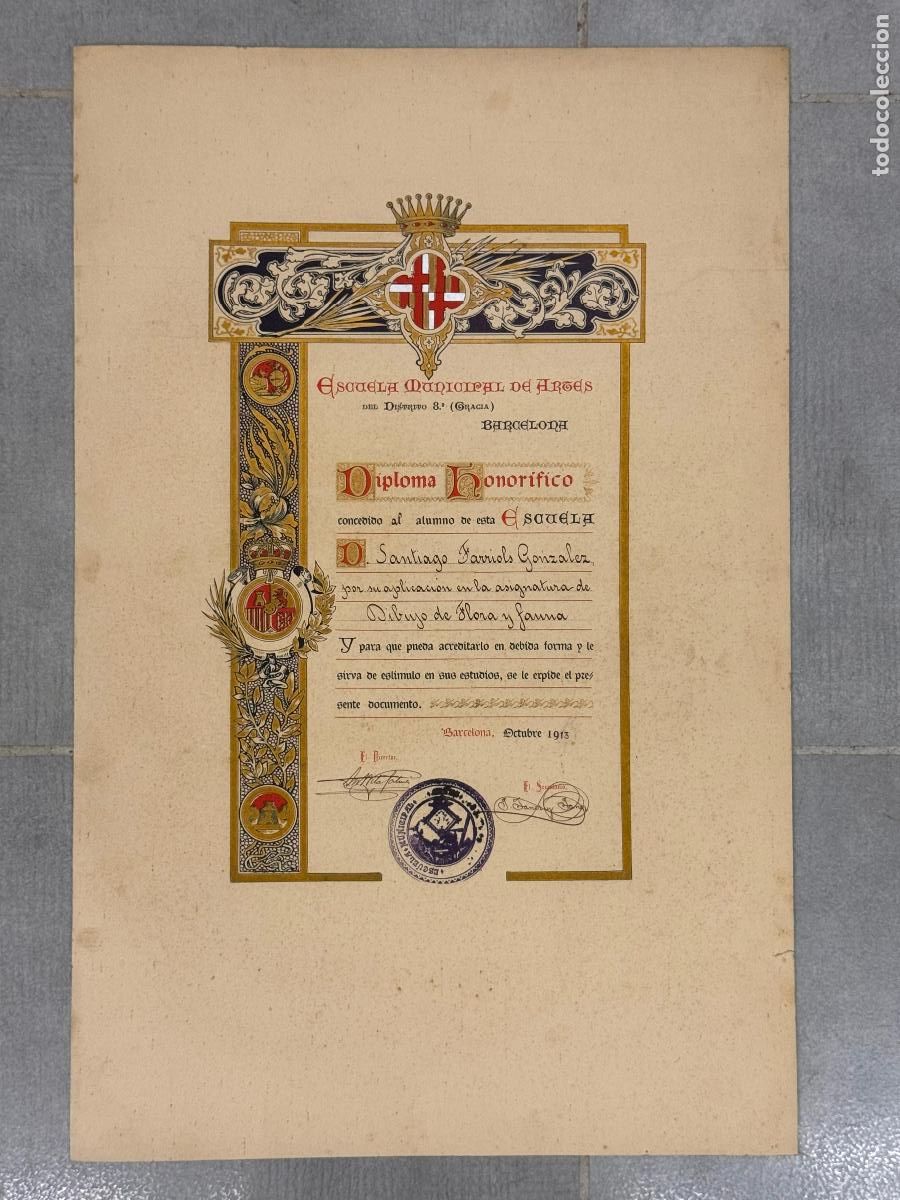 todocoleccion
Escuela Municipal de Artes
del Distrito 8.º (Gracia)
Barcelona
Diploma Honorífico
concedido al alumno de esta Escuela
D. Santiago Farriols Gonzalez,
por su aplicación en la asignatura de
Dibujo de Flora y fauna
Y para que pueda acreditarlo en debida forma y le
sirva de estímulo en sus estudios, se le expide el pre-
sente documento.
Barcelona, Octubre 1913
El Director,
El Secretario,
ESCUELA MUNICIPAL